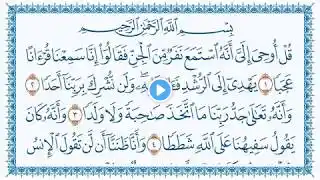 بِسْمِ اللَّهِ الرَّحْمَٰنِ الرَّحِيمِ
قُلْ أُوحِيَ إِلَيَّ أَنَّهُ اسْتَمَعَ نَفَرٌ مِّنَ الْجِنِّ فَقَالُوا إِنَّا سَمِعْنَا قُرْآنًا
عَجَبًا ١ يَهْدِي إِلَى الرُّشْدِ وَلَن نُّشْرِكَ بِرَبِّنَا أَحَدًا ٢
وَأَنَّهُ تَعَالَىٰ جَدُّ رَبِّنَا مَا اتَّخَذَ صَاحِبَةً وَلَا وَلَدًا ٣ وَأَنَّهُ كَانَ
يَقُولُ سَفِيهُنَا عَلَى اللَّهِ شَطَطًا ٤ وَأَنَّا ظَنَنَّا أَن لَّن تَقُولَ الْإِنسُ